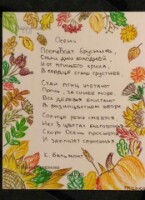 Осень
Поспевает брусника,
Стали дни холодней.
И от птичьего крика
В сердце стало грустней.
Стаи птиц улетают
Прочь, за синее море,
Все деревья блистают
В разноцветном уборе.
Солнце реже смеётся
Нет в цветах благовонья.
Скоро Осень проснётся
И заплачет спросонья.
К. Бальмонт